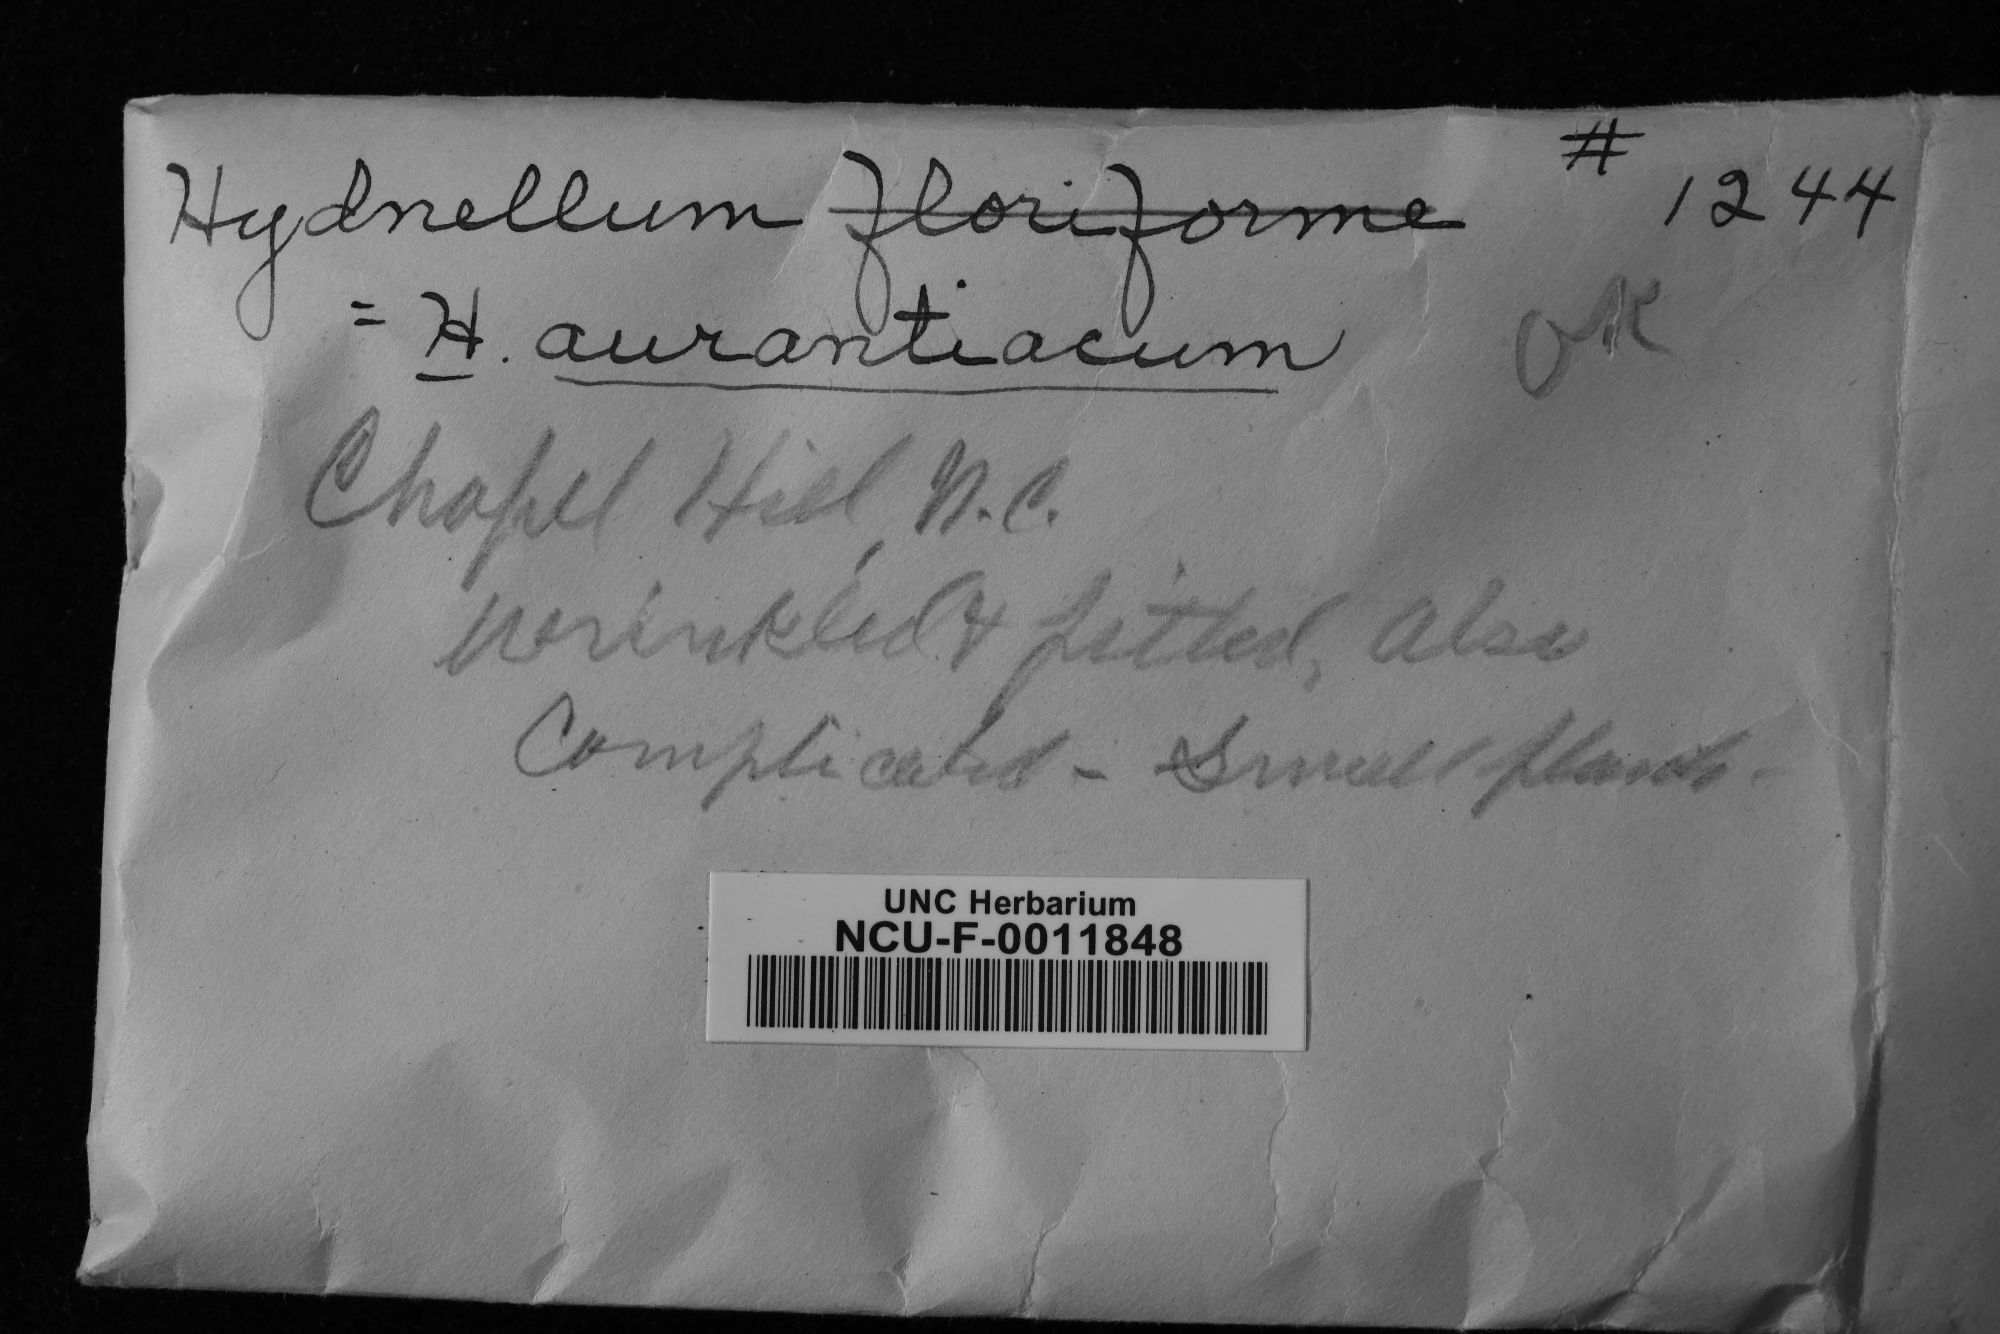 Hydnellum floriforme # 1244
= H. aurantiacum OK
Chapel Hill, N.C.
Wrinkled & pitted, also
Complicated - Small plants -
UNC Herbarium
NCU-F-0011848